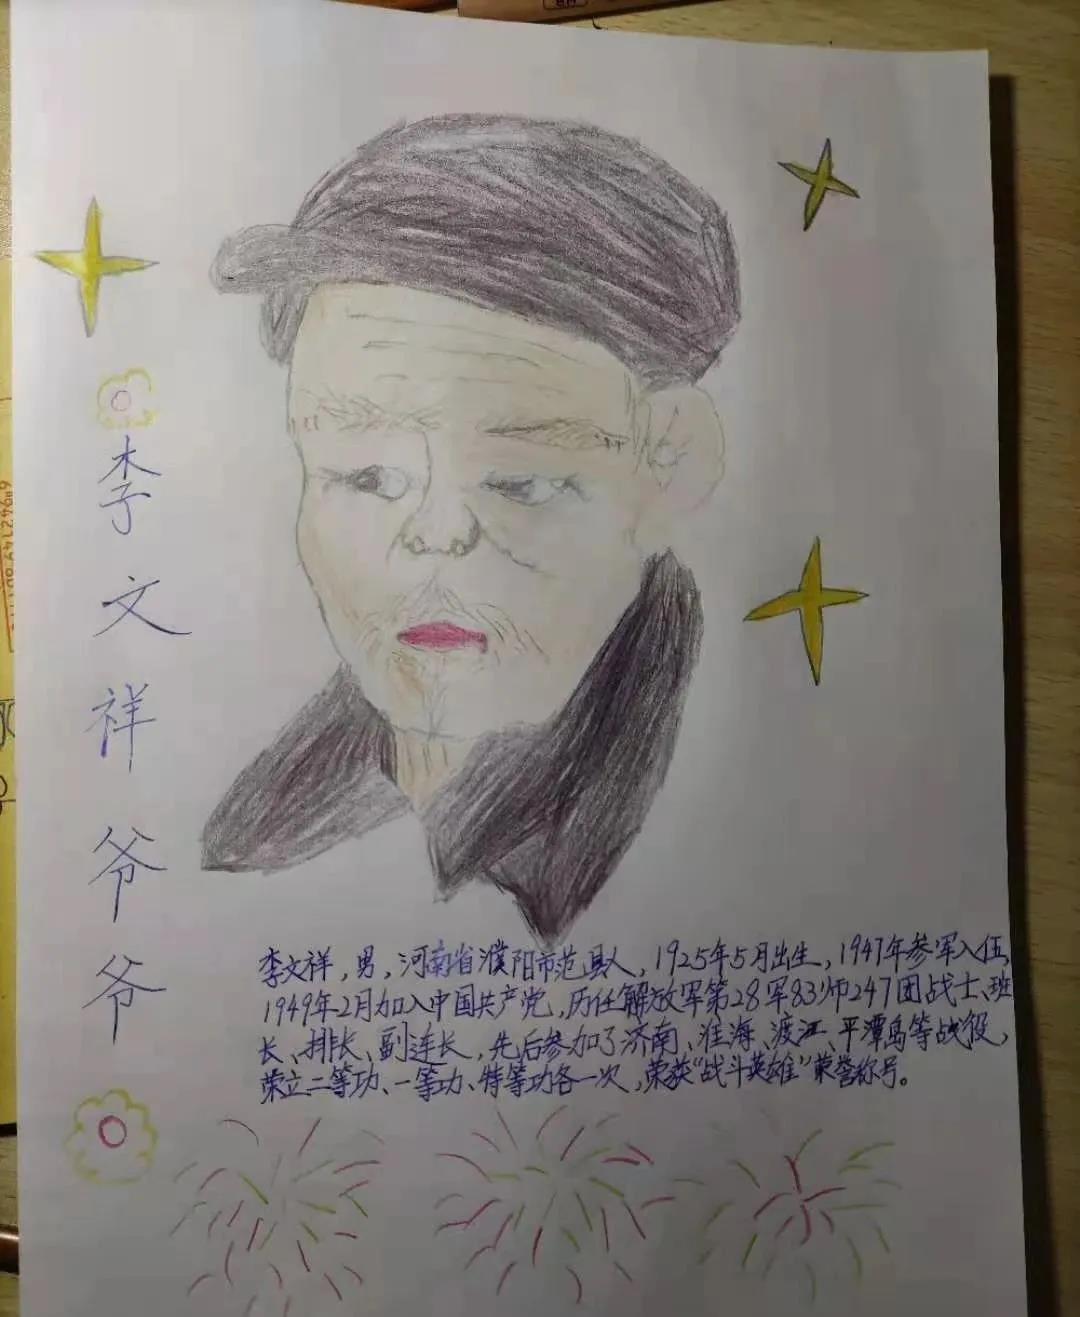 李文祥爷爷
李文祥，男，河南省濮阳市范县人，1925年5月出生，1947年参军入伍，
1949年2月加入中国共产党，历任解放军第28军83师247团战士、班
长、排长、副连长，先后参加了济南、淮海、渡江、平潭岛等战役，
荣立二等功、一等功、特等功各一次，荣获“战斗英雄”荣誉称号。